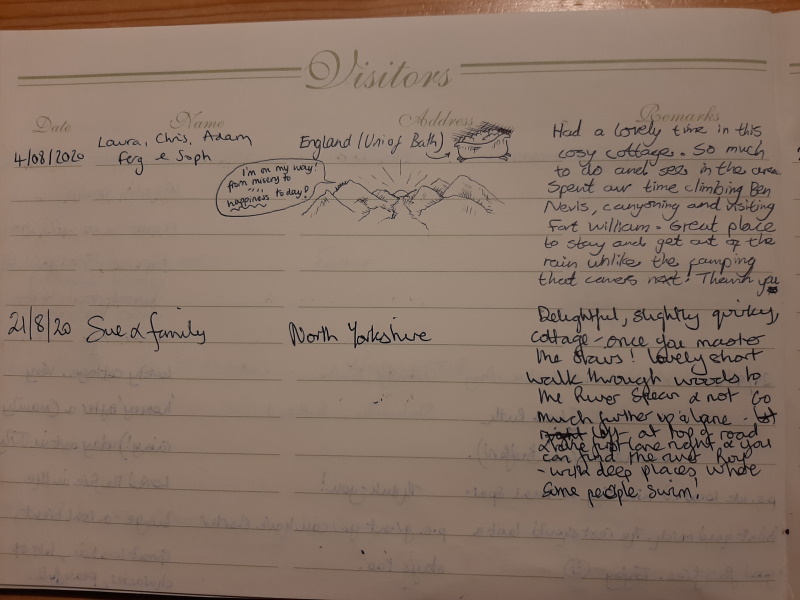 Visitors
Date Name Address Remarks
4/08/2020 Laura, Chris, Adam
Ferg & Soph
England (Uni of Bath)
I'm on my way!
from misery to
happiness today!
Had a lovely time in this
cosy cottage. So much
to do and see in the area
Spent our time climbing Ben
Nevis, canyoning and visiting
Fort William. Great place
to stay and get out of the
rain unlike the camping
that comes next! Thank you
21/8/20 Sue & family North Yorkshire
Delightful, slightly quirky,
cottage - once you master
the stairs! Lovely short
walk through woods to
the River Spean & not so
much further up a lane -
left at top of road
& take first lane right & you
can find the river Roy
- with deep places where
some people swim!